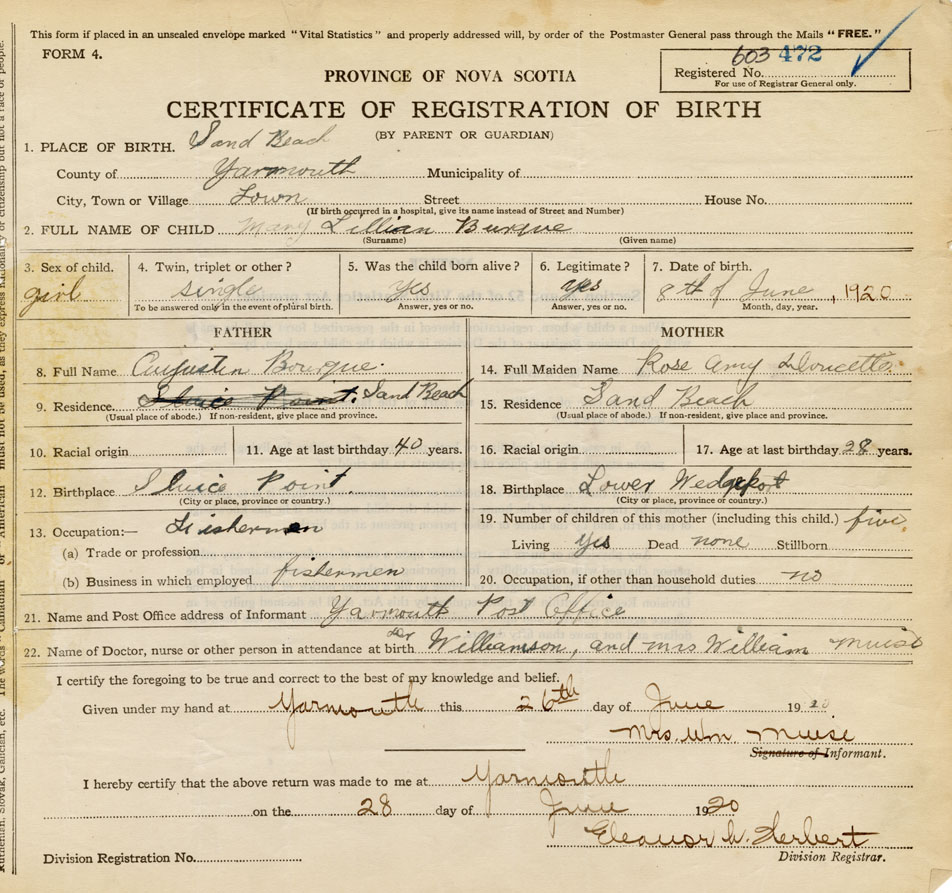 This form if placed in an unsealed envelope marked "Vital Statistics" and properly addressed will, by order of the Postmaster General pass through the Mails "FREE."
FORM 4.
603 472
Registered No.
For use of Registrar General only.
PROVINCE OF NOVA SCOTIA
CERTIFICATE OF REGISTRATION OF BIRTH
(BY PARENT OR GUARDIAN)
1. PLACE OF BIRTH. Sand Beach
County of Yarmouth Municipality of
City, Town or Village Town Street House No.
(If birth occurred in a hospital, give its name instead of Street and Number)
2. FULL NAME OF CHILD Mary Lillian Burque
(Surname) (Given name)
3. Sex of child. 4. Twin, triplet or other? 5. Was the child born alive? 6. Legitimate? 7. Date of birth.
girl single yes yes 8th of June, 1920
To be answered only in the event of plural birth. Answer, yes or no. Answer, yes or no. Month, day, year.
FATHER
8. Full Name Augustin Bourque.
9. Residence. Sluice Point. Sand Beach
(Usual place of abode.) If non-resident, give place and province.
10. Racial origin 11. Age at last birthday 40 years.
12. Birthplace Sluice Point.
(City or place, province or country.)
13. Occupation:— Fishermen
(a) Trade or profession
(b) Business in which employed fishermen
MOTHER
14. Full Maiden Name Rose Amy Doucette.
15. Residence Sand Beach
(Usual place of abode.) If non-resident, give place and province.
16. Racial origin 17. Age at last birthday 28 years.
18. Birthplace Lower Wedgeport
(City or place, province or country.)
19. Number of children of this mother (including this child.) five.
Living yes Dead none Stillborn
20. Occupation, if other than household duties no
21. Name and Post Office address of Informant Yarmouth Post Office
22. Name of Doctor, nurse or other person in attendance at birth Dr Williamson, and Mrs William Muise
I certify the foregoing to be true and correct to the best of my knowledge and belief.
Given under my hand at Yarmouth this 26th day of June 1920
Mrs. Wm Muise
Signature of Informant.
I hereby certify that the above return was made to me at Yarmouth
on the 28 day of June 1920
Eleanor W. Herbert
Division Registration No. Division Registrar.